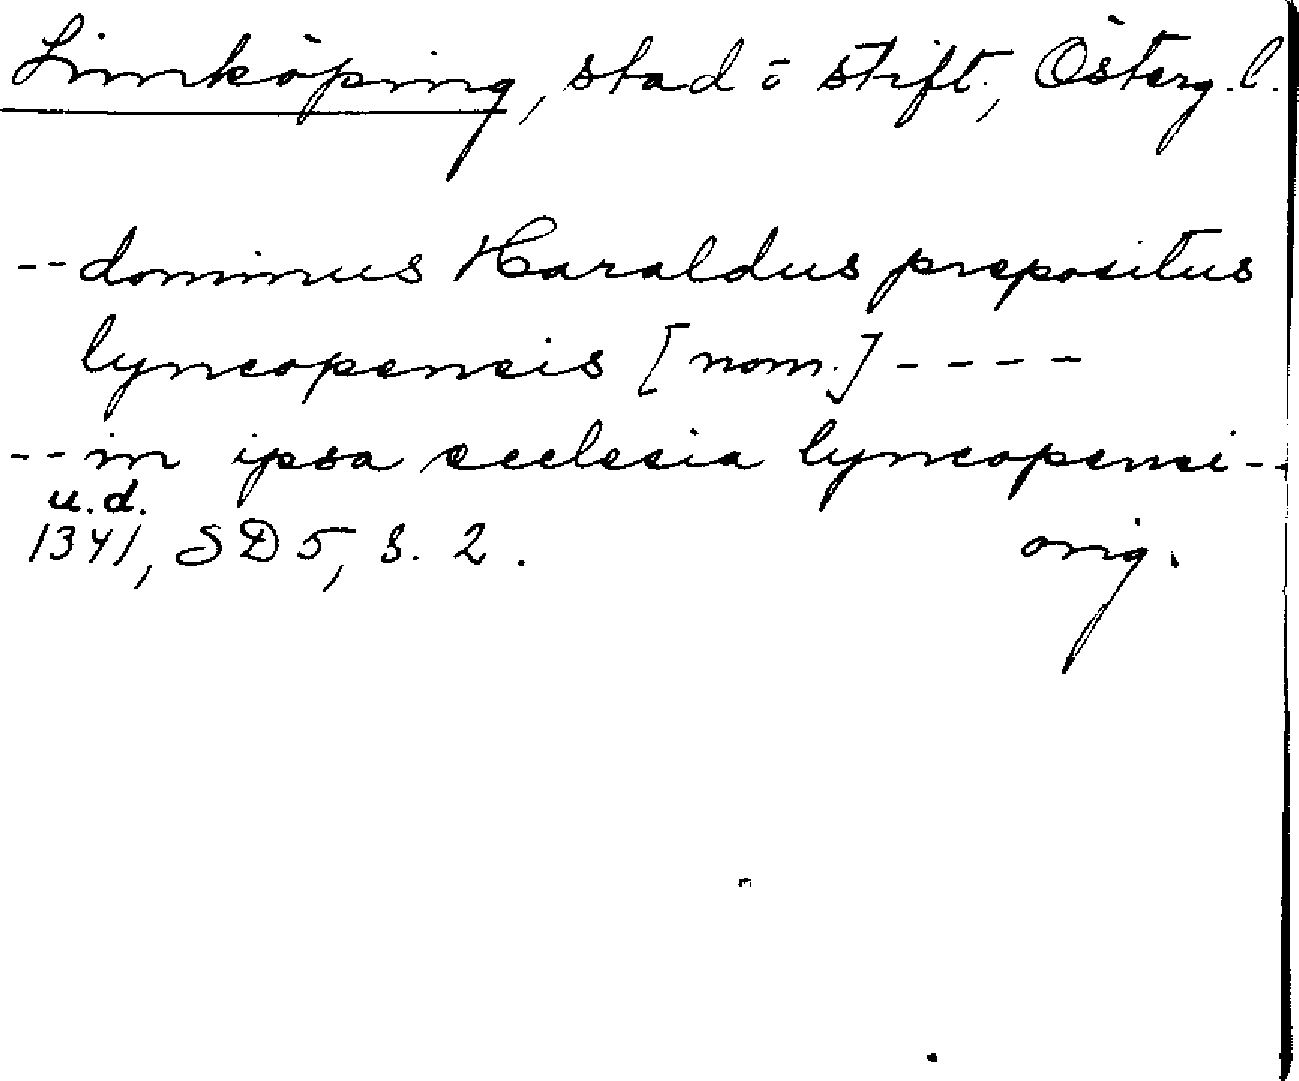 Linköping, stad o stift, Österg. l.
-- dominus Haraldus prepositus
lyncopensis [nom.] - - - -
-- in ipsa ecclesia lyncopensi --
u.d.
1341, SD 5, s. 2. orig.